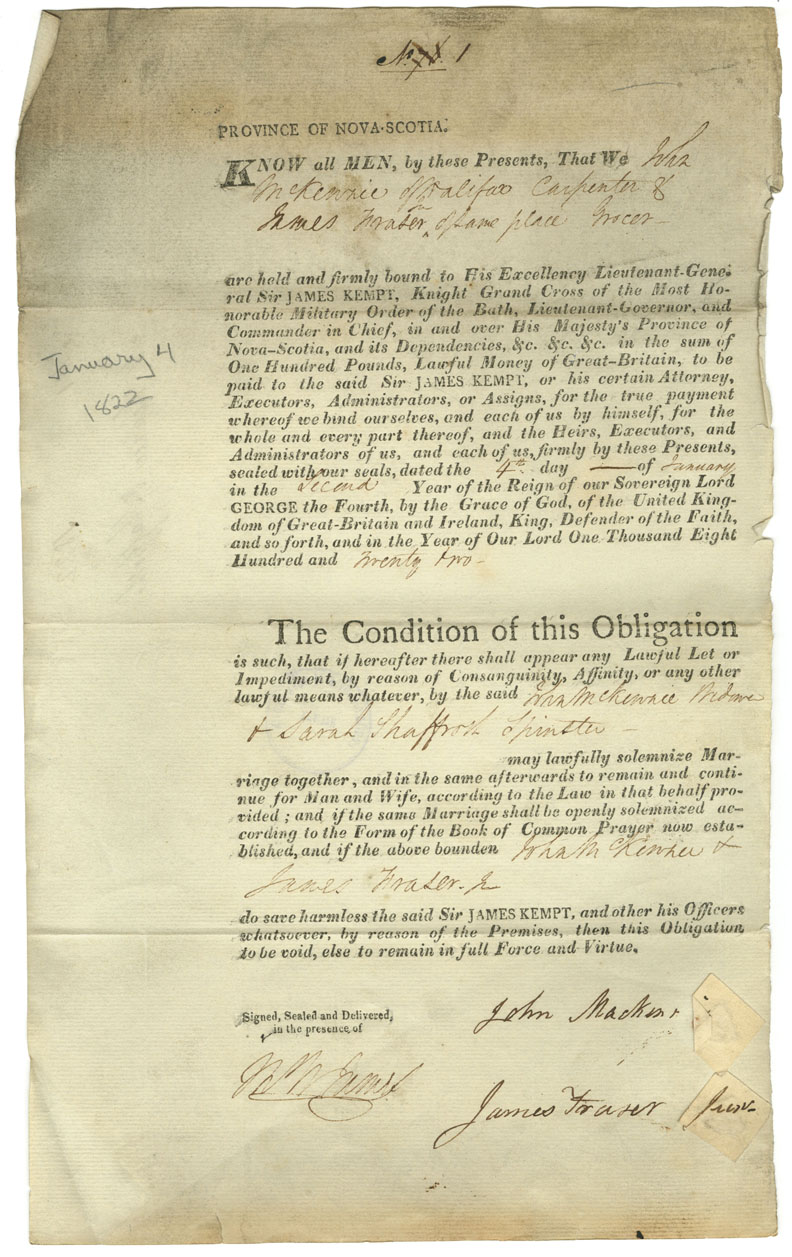 No. 1
PROVINCE OF NOVA-SCOTIA.
KNOW all MEN, by these Presents, That We John
McKennie of Halifax Carpenter &
James Fraser Jr of same place Grocer
are held and firmly bound to His Excellency Lieutenant-Gene-
ral Sir JAMES KEMPT, Knight Grand Cross of the Most Ho-
norable Military Order of the Bath, Lieutenant-Governor, and
Commander in Chief, in and over His Majesty's Province of
Nova-Scotia, and its Dependencies, &c. &c. &c. in the sum of
One Hundred Pounds, Lawful Money of Great-Britain, to be
paid to the said Sir JAMES KEMPT, or his certain Attorney,
Executors, Administrators, or Assigns, for the true payment
whereof we bind ourselves, and each of us by himself, for the
whole and every part thereof, and the Heirs, Executors, and
Administrators of us, and each of us, firmly by these Presents,
sealed with our seals, dated the 4th day — of January
in the Second Year of the Reign of our Sovereign Lord
GEORGE the Fourth, by the Grace of God, of the United King-
dom of Great-Britain and Ireland, King, Defender of the Faith,
and so forth, and in the Year of Our Lord One Thousand Eight
Hundred and Twenty two -
January 4
1822
The Condition of this Obligation
is such, that if hereafter there shall appear any Lawful Let or
Impediment, by reason of Consanguinity, Affinity, or any other
lawful means whatever, by the said John McKennie Widower
& Sarah Shaffroth Spinster -
may lawfully solemnize Mar-
riage together, and in the same afterwards to remain and conti-
nue for Man and Wife, according to the Law in that behalf pro-
vided; and if the same Marriage shall be openly solemnized ac-
cording to the Form of the Book of Common Prayer now esta-
blished, and if the above bounden John McKennie &
James Fraser Jr
do save harmless the said Sir JAMES KEMPT, and other his Officers
whatsoever, by reason of the Premises, then this Obligation
to be void, else to remain in full Force and Virtue.
Signed, Sealed and Delivered,
in the presence of
John Macken
James Fraser Junr